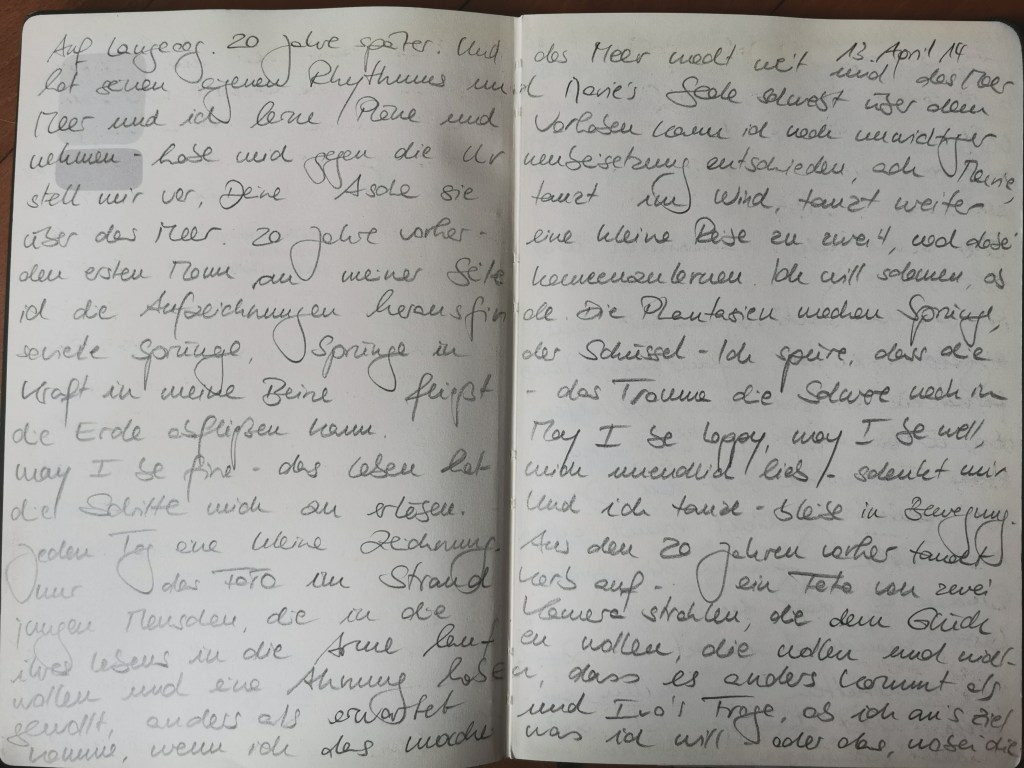 13. April 14
Auf Langeoog. 20 Jahre später. Und das Meer macht weit und das Meer
hat seinen eigenen Rhythmus und Marie's Seele schwebt über dem
Meer und ich lerne Pläne und Vorhaben kann ich noch unwichtiger
nehmen - habe mich gegen die Urnenbeisetzung entschieden, ach Marie,
stell mir vor, Deine Asche sie tanzt im Wind, tanzt weiter
über das Meer. 20 Jahre vorher - eine kleine Reise zu zweit, und dabei
den ersten Mann an meiner Seite kennenzulernen. Ich will schauen, ob
ich die Aufzeichnungen herausfinde. Die Phantasien machen Sprünge,
Sprünge, Sprünge in der Schüssel - Ich spüre, dass die
Kraft in meine Beine fließt - das Trauma die Schwere nach in
die Erde abfließen kann. May I be happy, may I be well,
may I be fine - das Leben hat mich unendlich lieb - schenkt mir
die Schritte mich zu erlösen. Und ich tanze - bleibe in Bewegung.
Jeden Tag eine kleine Zeichnung. Aus den 20 Jahren vorher taucht
nur das Foto im Strandkorb auf - ein Foto von zwei
jungen Menschen, die in die Kamera strahlen, die dem Glück
ihres Lebens in die Arme laufen wollen, die wollen und nicht
wollen und eine Ahnung haben, dass es anders kommt als
gewollt, anders als erwartet und Ivo's Frage, ob ich an's Ziel
komme, wenn ich das mache was ich will oder das, wobei die